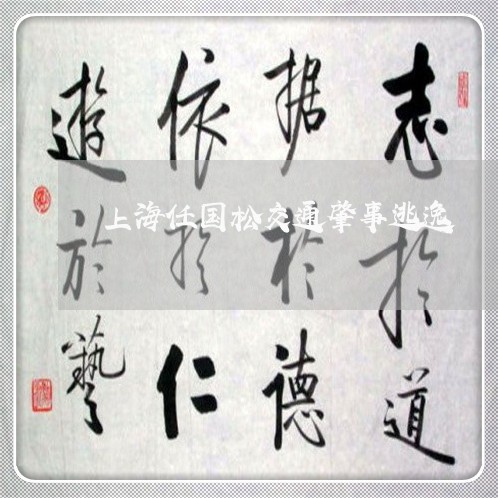 志於道
据於德
依於仁
遊於藝
上海任国松交通肇事逃逸